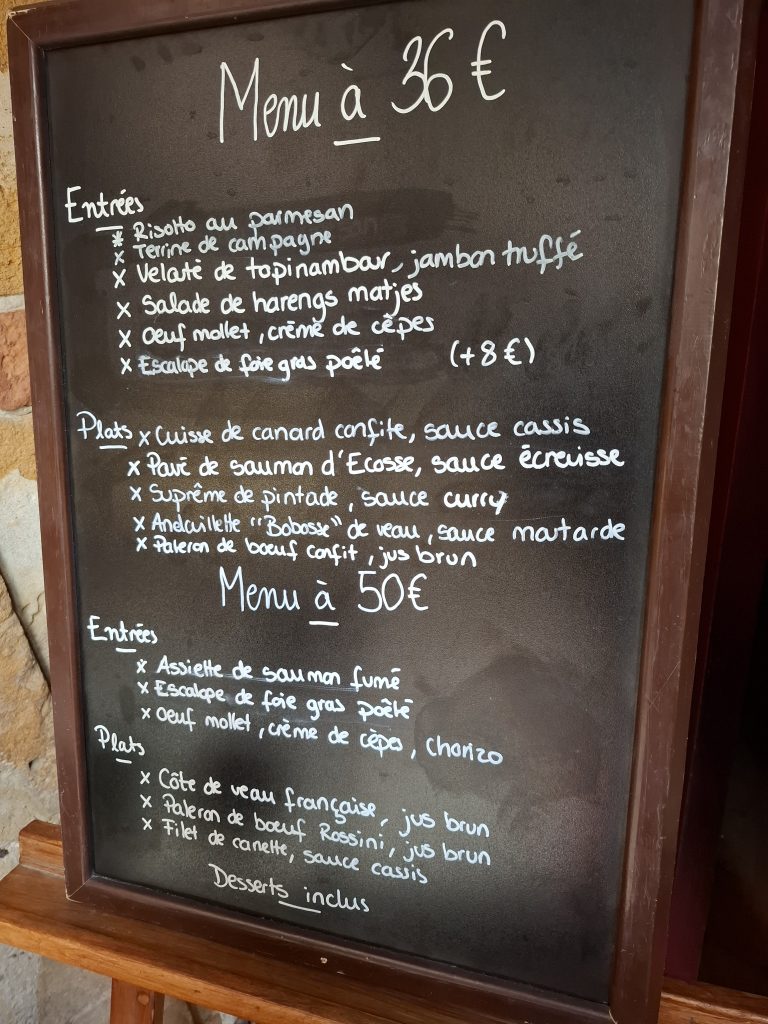 Menu à 36 €
Entrées
* Risotto au parmesan
x Terrine de campagne
x Velouté de topinambour, jambon truffé
x Salade de harengs matjes
x Oeuf mollet, crème de cèpes
x Escalope de foie gras poêlé (+8 €)
Plats x Cuisse de canard confite, sauce cassis
x Pavé de saumon d'Ecosse, sauce écrevisse
x Suprême de pintade, sauce curry
x Andouillette "Bobosse" de veau, sauce moutarde
x Paleron de boeuf confit, jus brun
Menu à 50€
Entrées
x Assiette de saumon fumé
x Escalope de foie gras poêlé
x Oeuf mollet, crème de cèpes, chorizo
Plats
x Côte de veau française, jus brun
x Paleron de boeuf Rossini, jus brun
x Filet de canette, sauce cassis
Desserts inclus